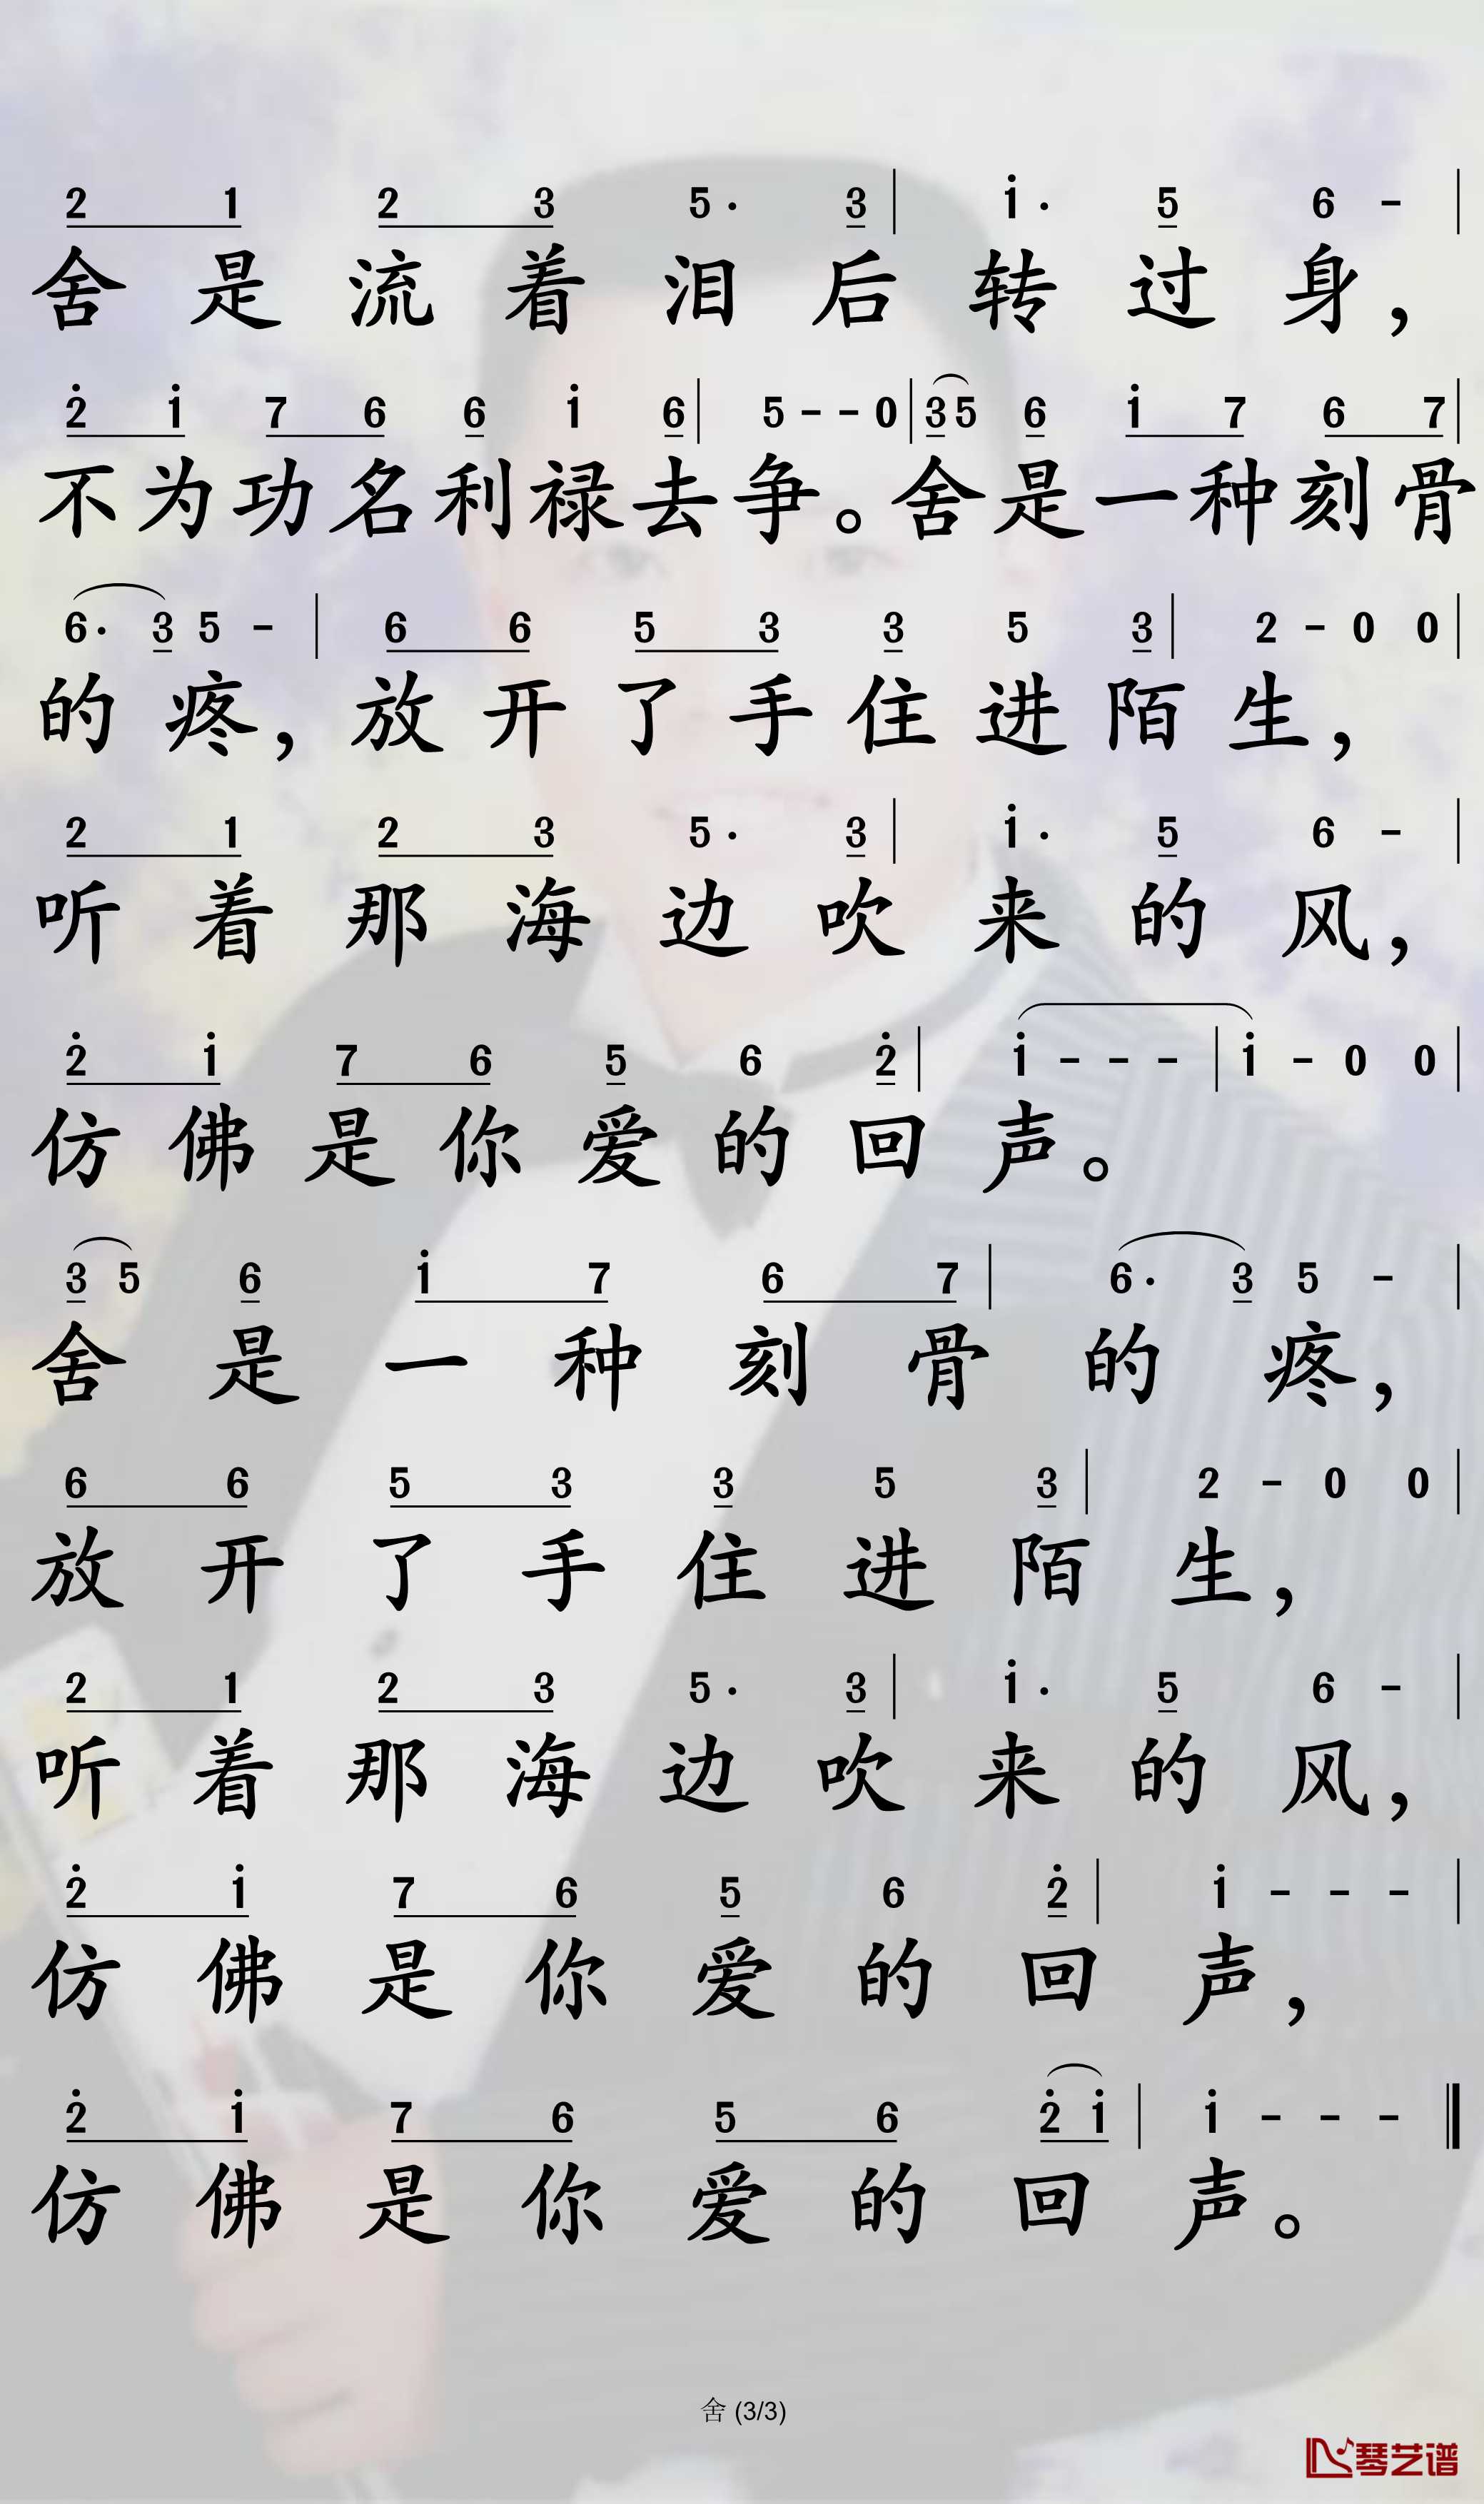 2 1 2 3 5· 3 | i· 5 6 - |
舍是流着泪后转过身，
2̇ i 7 6 6 i 6 | 5 - - 0 | 3 5 6 i 7 6 7 |
不为功名利禄去争。舍是一种刻骨
6· 3 5 - | 6 6 5 3 3 5 3 | 2 - 0 0 |
的疼，放开了手住进陌生，
2 1 2 3 5· 3 | i· 5 6 - |
听着那海边吹来的风，
2̇ i 7 6 5 6 2̇ | i - - - | i - 0 0 |
仿佛是你爱的回声。
3 5 6 i 7 6 7 | 6· 3 5 - |
舍是一种刻骨的疼，
6 6 5 3 3 5 3 | 2 - 0 0 |
放开了手住进陌生，
2 1 2 3 5· 3 | i· 5 6 - |
听着那海边吹来的风，
2̇ i 7 6 5 6 2̇ | i - - - |
仿佛是你爱的回声，
2̇ i 7 6 5 6 2̇ i | i - - - ‖
仿佛是你爱的回声。
舍 (3/3)
琴艺谱